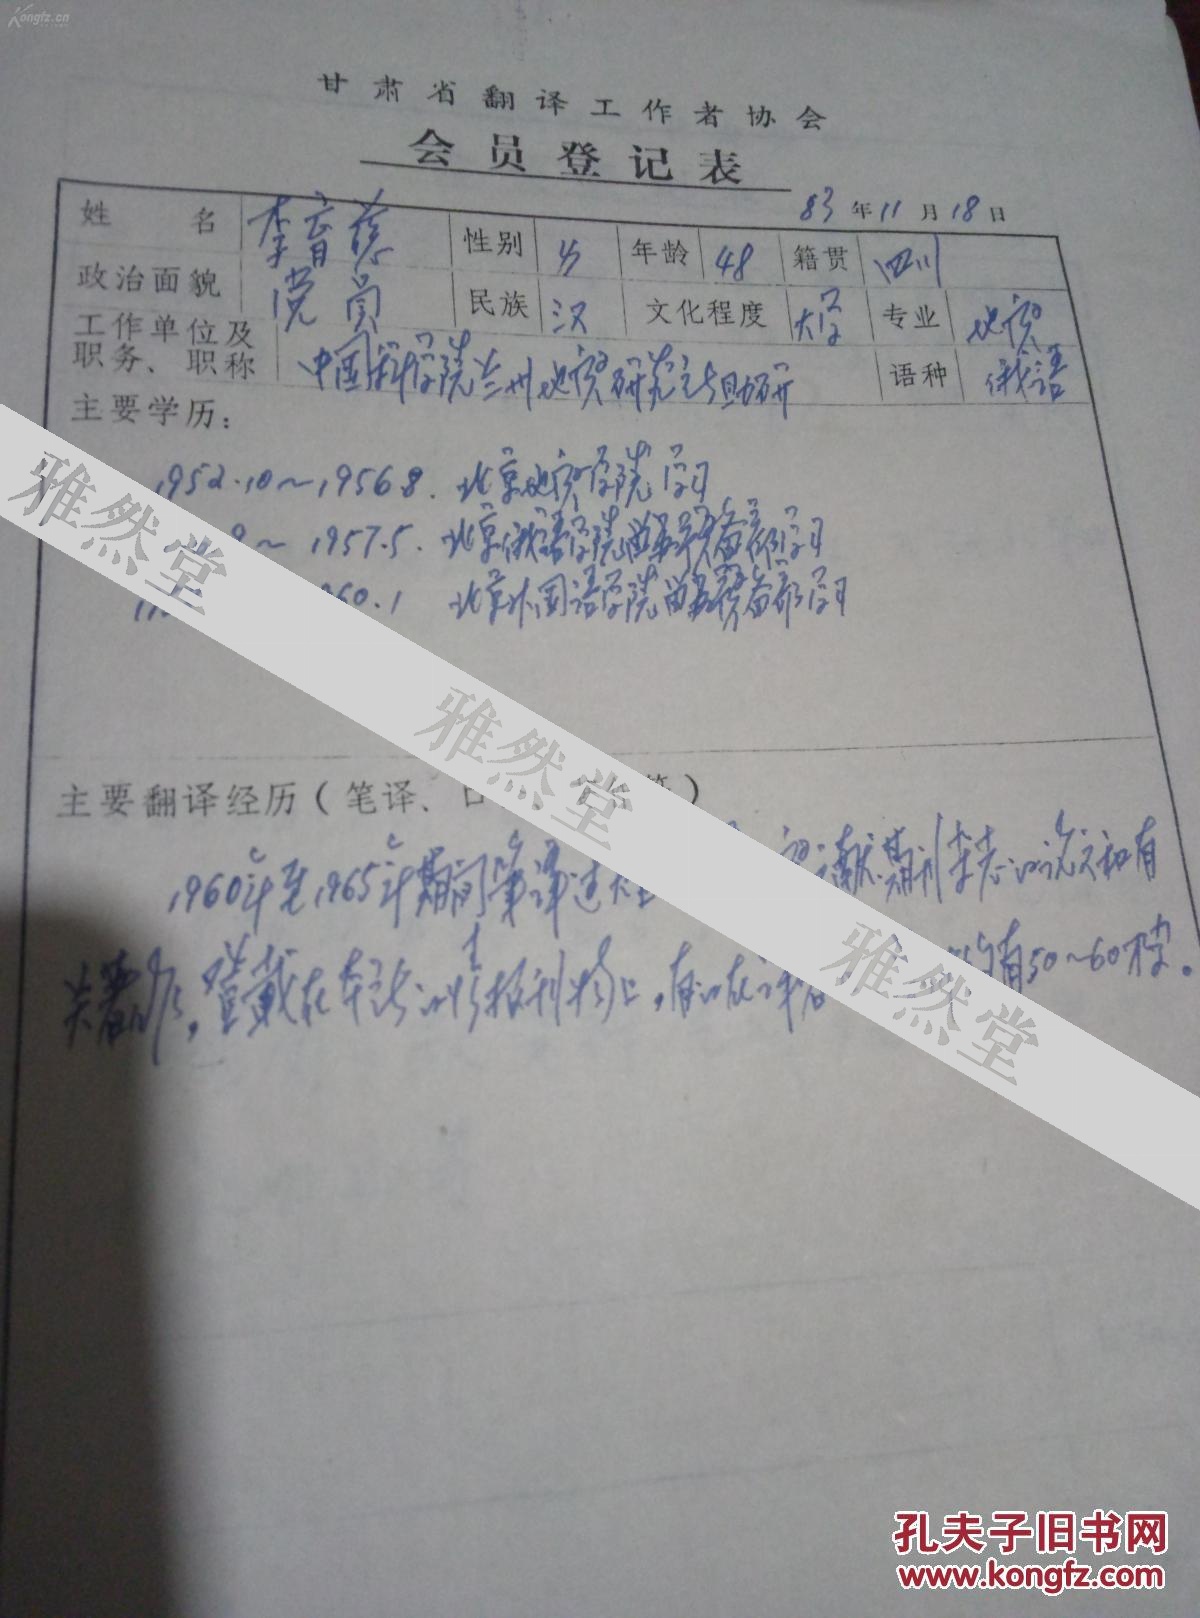 Kongfz.cn
甘肃省翻译工作者协会
会员登记表
83年11月18日
姓名 李育慈 性别 男 年龄 48 籍贯 四川
政治面貌 党员 民族 汉 文化程度 大学 专业 地质
工作单位及职务、职称 中国科学院兰州地质研究所助研 语种 俄语
主要学历：
1952.10～1956.8. 北京地质学院学习
9～1957.5. 北京俄语学院留苏预备部学习
60.1 北京外国语学院留苏预备部学习
主要翻译经历（笔译、口
1960年至1965年期间笔译过大量 期刊杂志的论文和有
关著作，登载在本所的情报刊物上，有的在 约有50～60万字。
雅然堂
雅然堂
雅然堂
孔夫子旧书网
www.kongfz.com